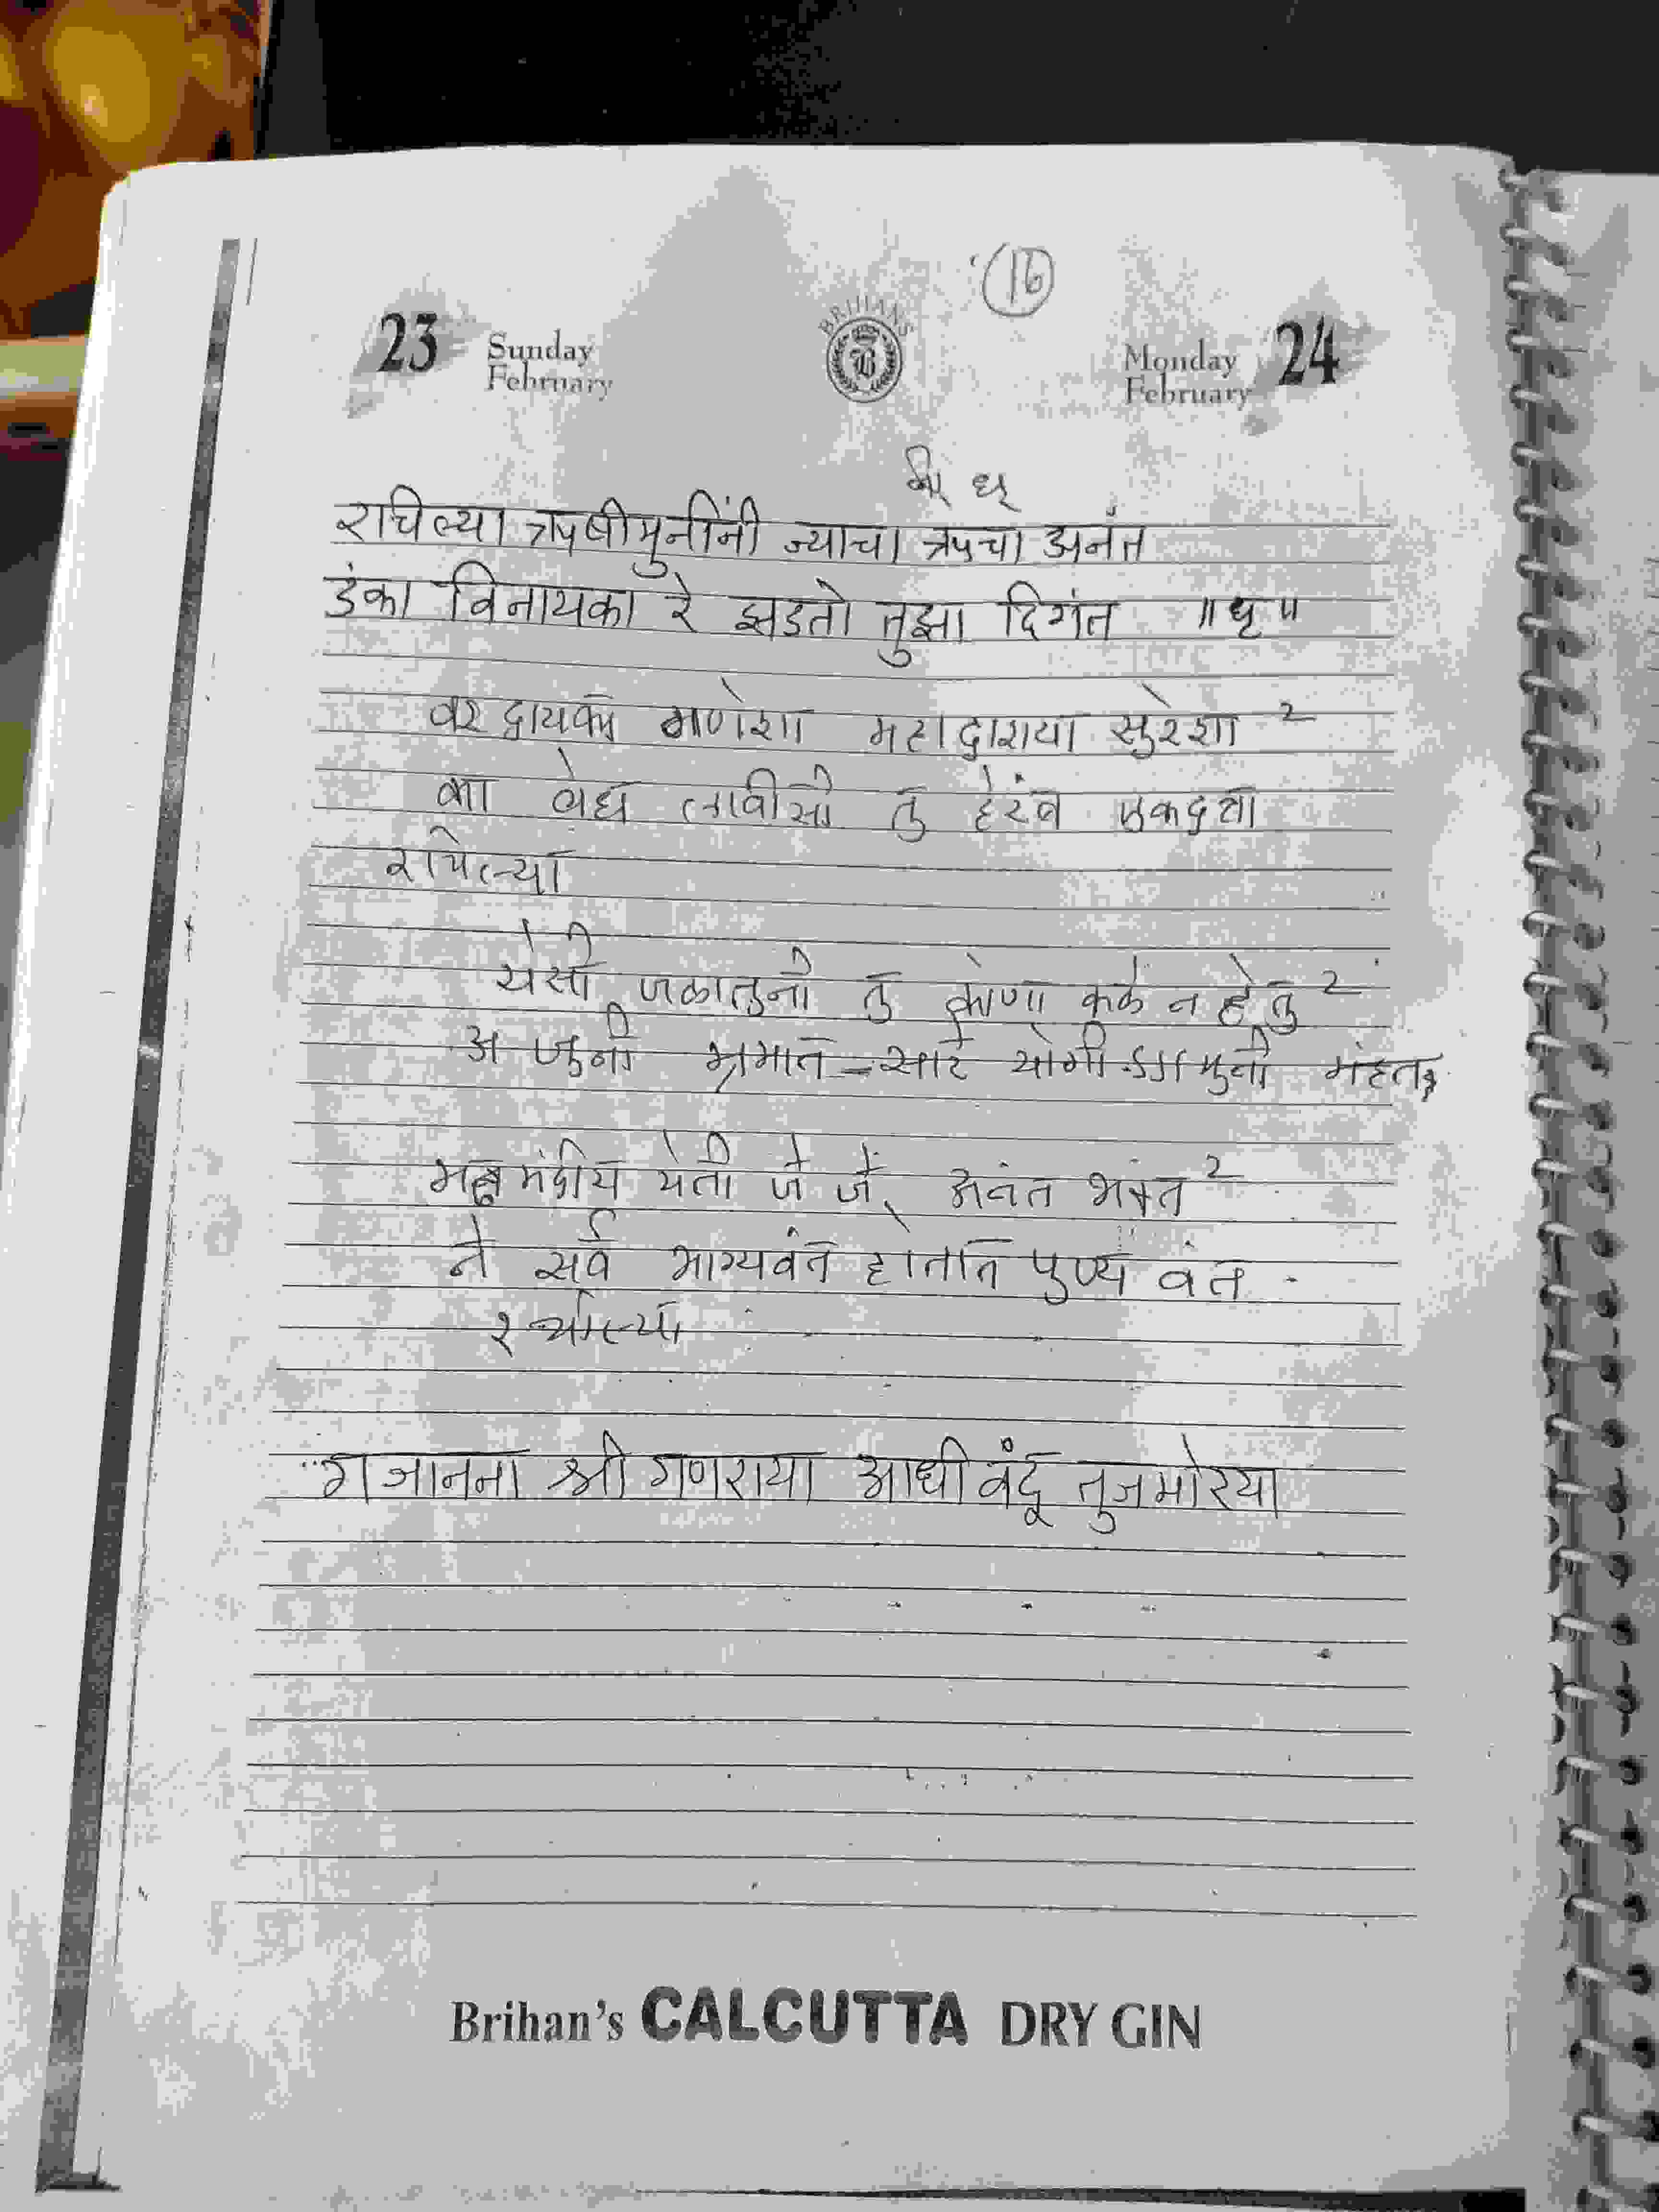 16
23 Sunday February
BRIHANS
Monday February 24
राचिल्या ऋषीमुनींनी ज्याचा ऋचा अनंत
डंका विनायका रे झडतो तुझा दिगंत ॥धृ॥
वरदायका गणेशा महादाशया सुरेशा २
का वेध लावीसी तु हेरंब एकदंता
रचिल्या
येसी जळातुनी तु कोणा कळे न हेतु २
अजुनी भ्रमात सारे योगी मुनी महंत
मंदीरी येती जे जे अनंत भक्त २
ते सर्व भाग्यवंत होतात पुण्य वंत
रचील्या
गजानना श्री गणराया आधी वंदू तुज मोरया
Brihan's CALCUTTA DRY GIN